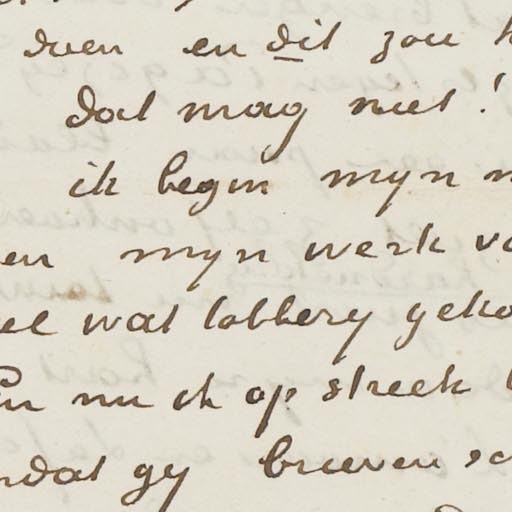 doen en dit zou
dat mag niet!
ik begin myn
en myn werk
wat tobbery
En nu ik op streek
dat gy brieven